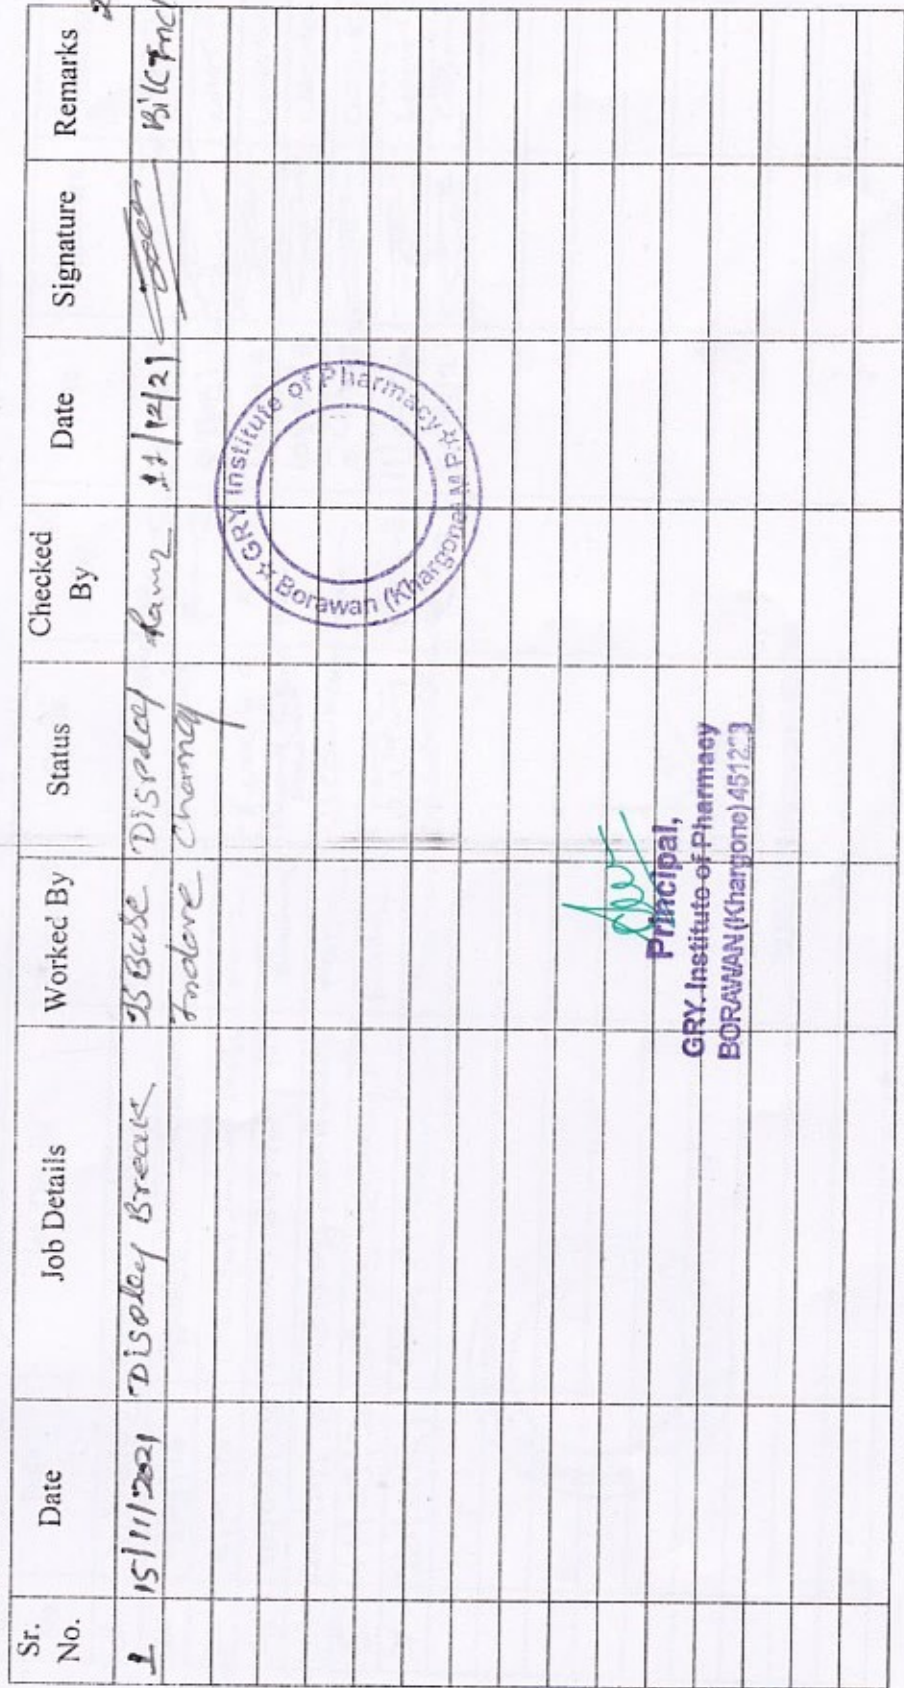 Sr. No. Date Job Details Worked By Status Checked By Date Signature Remarks
1 15/11/2021 Disploy Break Display 11/12/21
Indore Chang
GRY Institute of Pharmacy
Borawan (Khargone) M.P.
Principal,
GRY. Institute of Pharmacy
BORAWAN(Khargone)